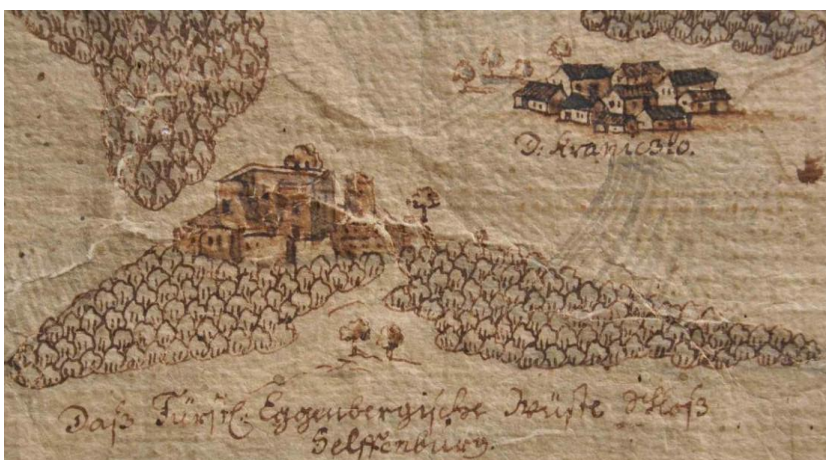 D: Kranicslo.
Daß Fürstl: Eggenbergische Wüste Schloß
Helffenburg.